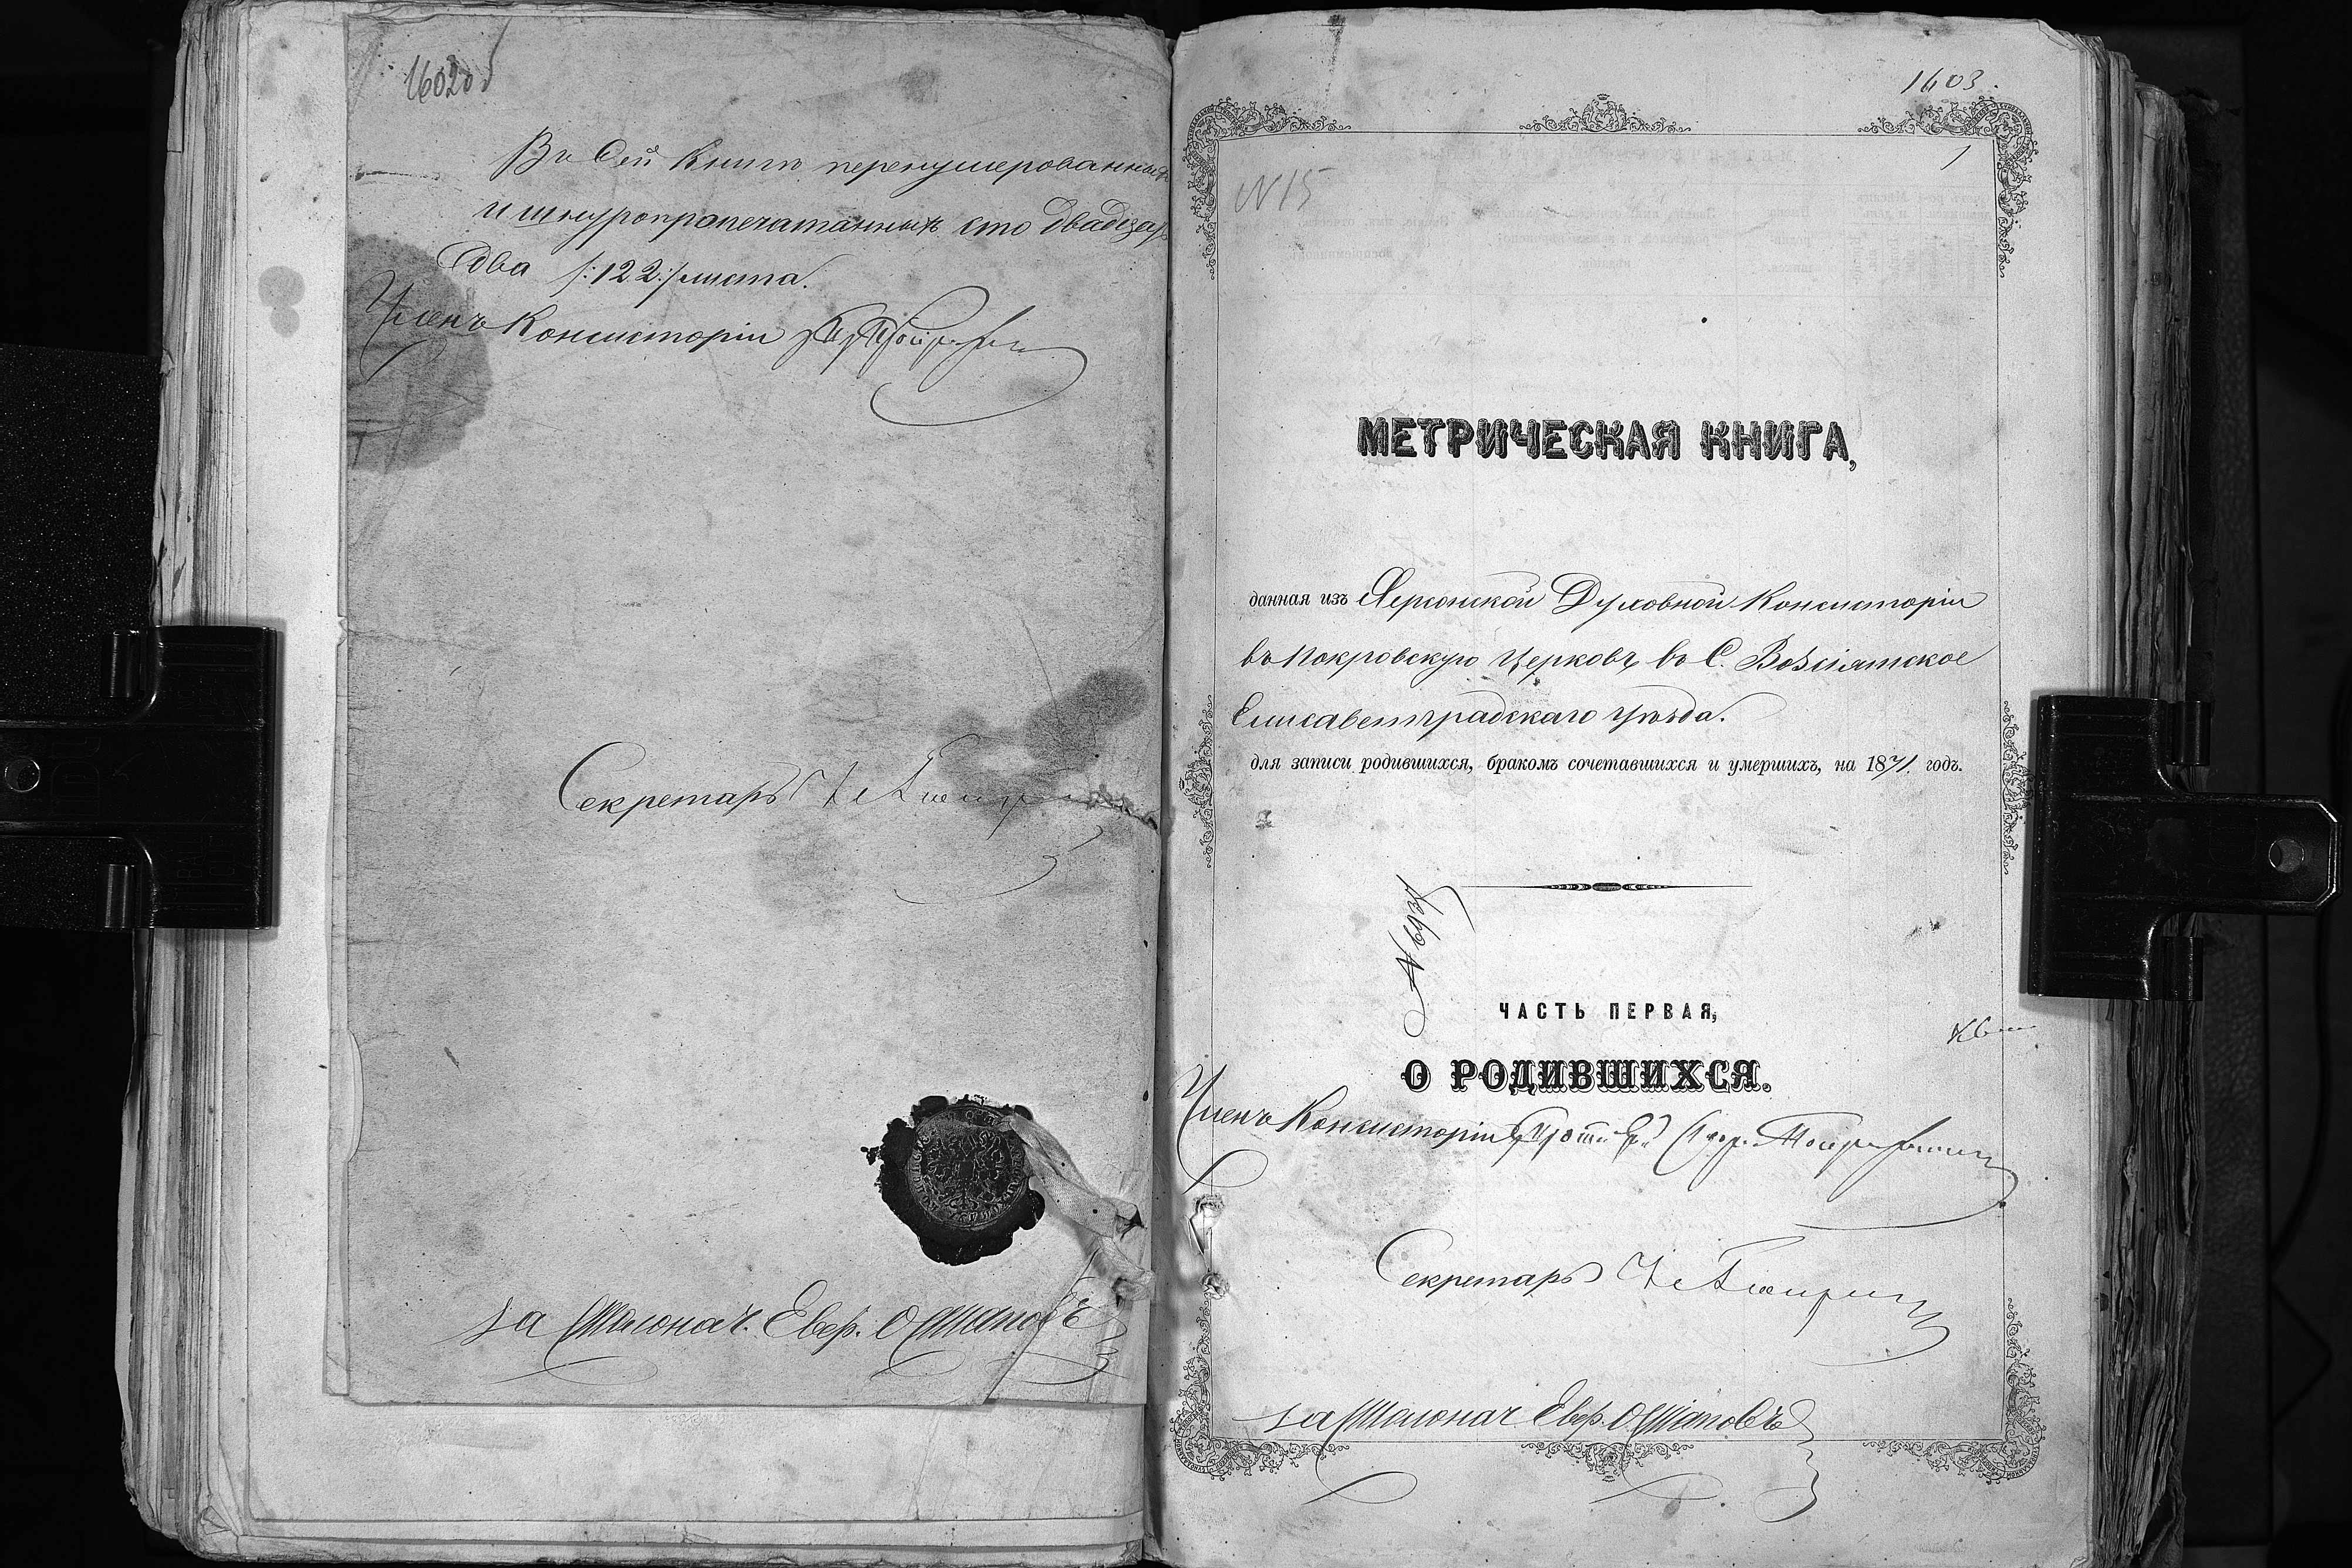 1602об
Въ Сей Книгѣ перенумерованныхъ
и шнуропропечатанныхъ сто двадцать
два /:122:/ листа.
Членъ Консисторіи
Секретарь
За Столонач. Евер. Остаповъ
1603.
1
N 15
МЕТРИЧЕСКАЯ КНИГА,
данная изъ Херсонской Духовной Консисторіи
въ Покровскую Церковь, въ С. Возсіятское
Елисаветградскаго уѣзда.
для записи родившихся, бракомъ сочетавшихся и умершихъ, на 1871. годъ.
ЧАСТЬ ПЕРВАЯ,
О РОДИВШИХСЯ.
Членъ Консисторіи
Секретарь
За Столонач Евер. Остаповъ